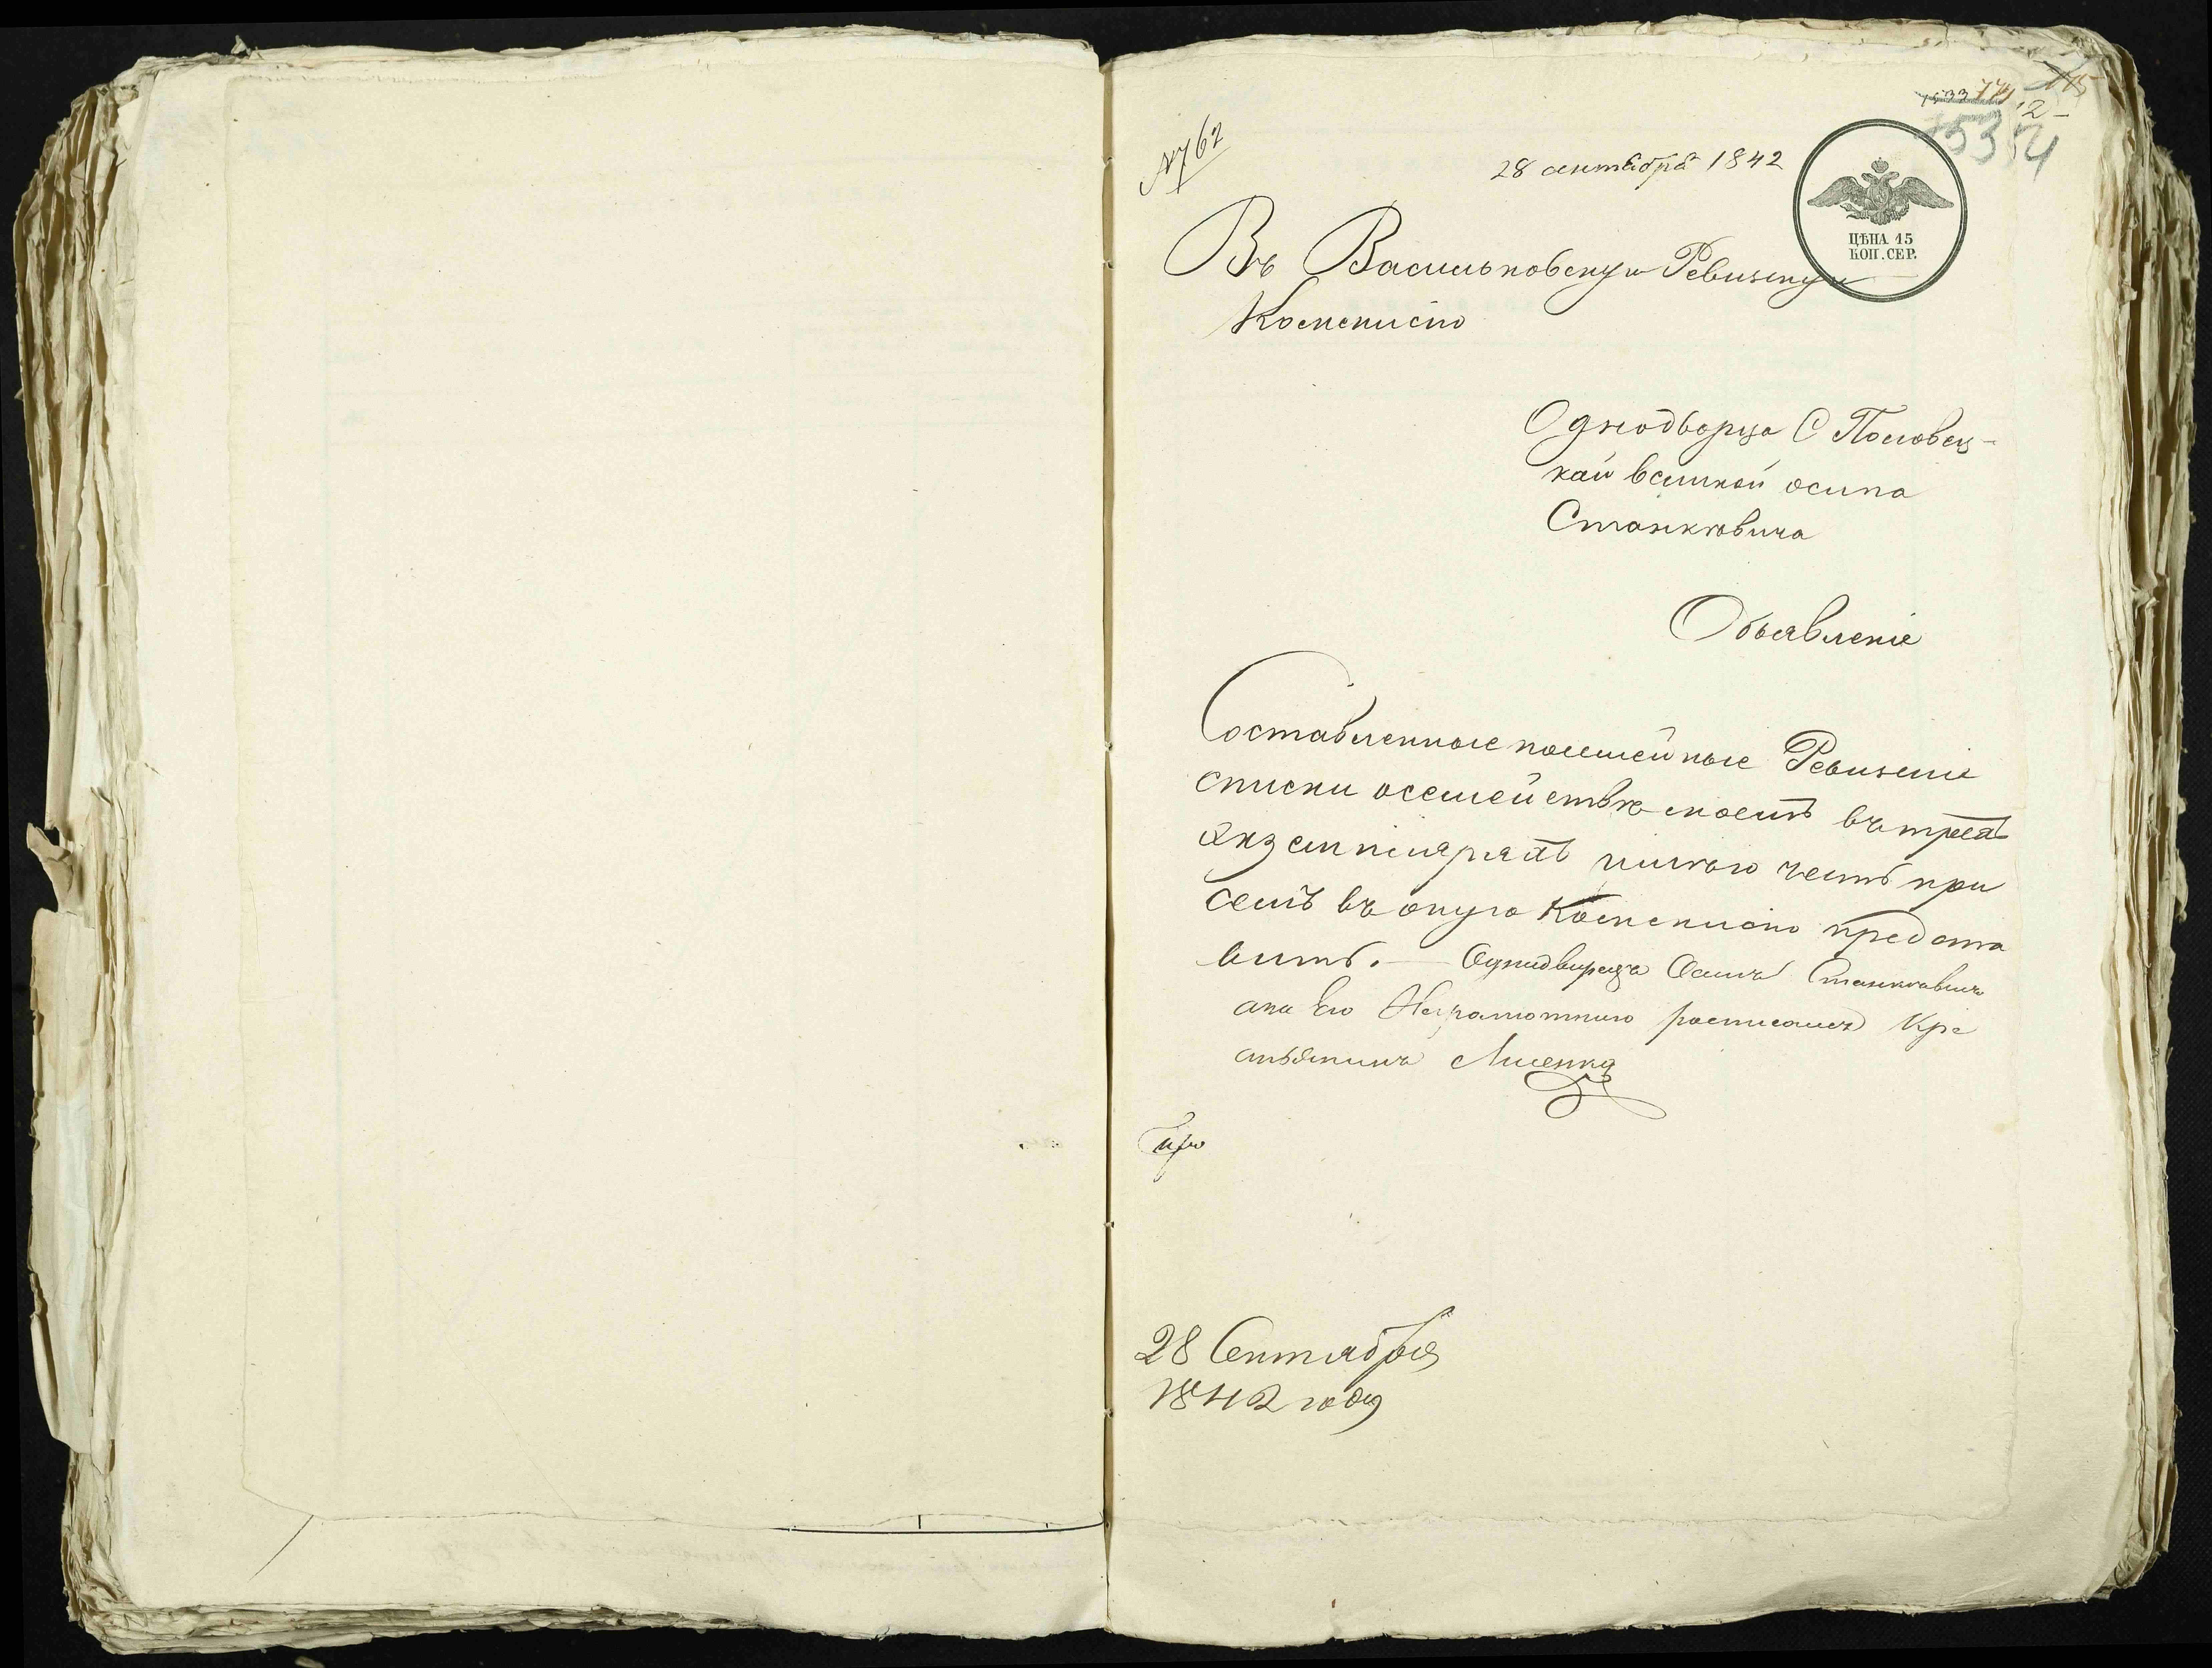 № 762
28 сентября 1842
1533
12
1534
ЦѢНА 15
КОП. СЕР.
Въ Васильковскую Ревизскую
Комсписію
Однодворца С Половец-
кой великой осипа
Станкевича
Объявленіе
Составленные посемейные Ревизкіе
списки осемействѣ моемъ въ трехъ
экземплярахъ имѣю честь при
семъ въ оную Комсписію предста
вить. — Однодворецъ Осипъ Станкевичъ
ана Его Неграмотнаго росписался Кре
стьянинъ Лисенко
28 Сентября
1842 года